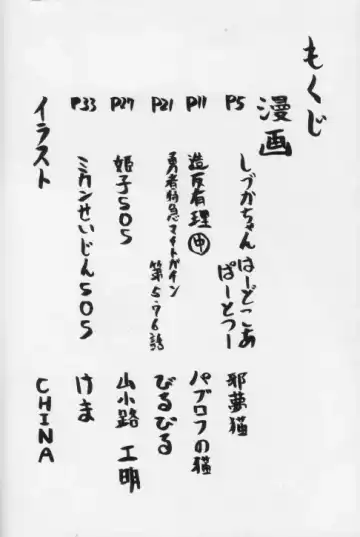 もくじ
漫画
P5 しづかちゃんはーどこあ ぱーとつー 邪夢猫
P11 造反有理㊥ パブロフの猫
P21 勇者特急マイトガイン 第5.76話 びるびる
P27 姫子SOS 山小路 工明
P33 ミカンせいじんSOS けま
イラスト CHINA